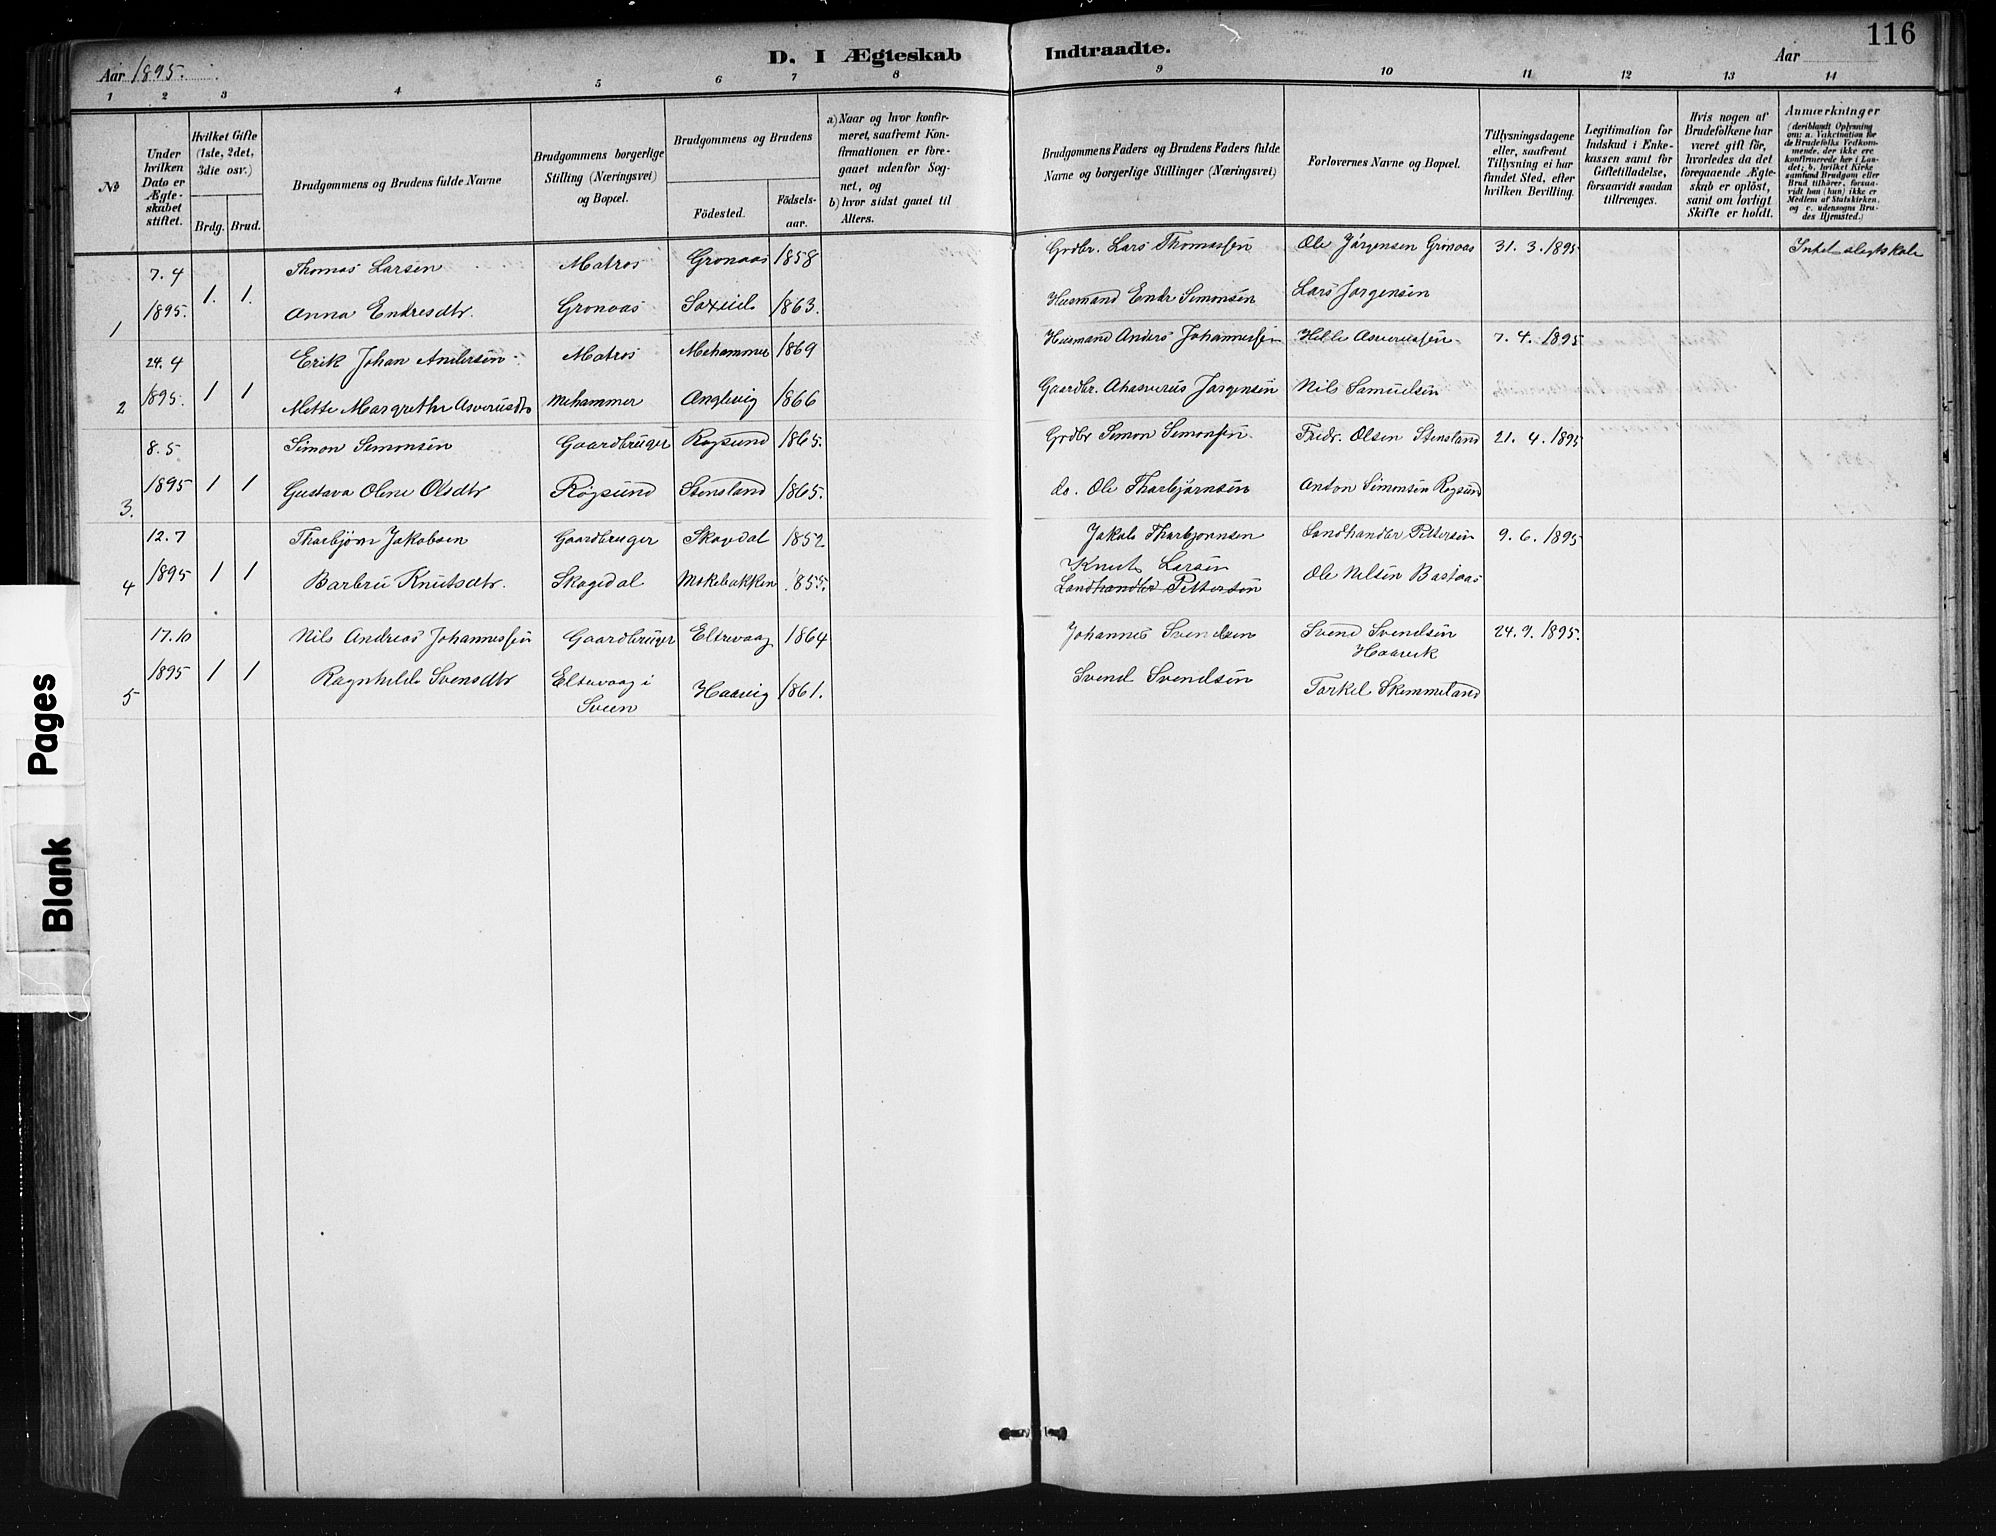 116
D. I Ægteskab Indtraadte.
Aar 1895.
Aar
1 2 3 4 5 6 7 8 9 10 11 12 13 14
No
Under hvilken Dato er Ægteskabet stiftet.
Hvilket Gifte (1ste, 2det, 3die osv.)
Brdg. Brud.
Brudgommens og Brudens fulde Navne
Brudgommens borgerlige Stilling (Næringsvei) og Bopæl.
Brudgommens og Brudens
Fødested.
Fødselsaar.
a) Naar og hvor konfirmeret, saafremt Konfirmationen er foregaaet udenfor Sognet, og
b) hvor sidst gaaet til Alters.
Brudgommens Faders og Brudens Faders fulde Navne og borgerlige Stillinger (Næringsvei)
Forlovernes Navne og Bopæl.
Tillysningsdagene eller, saafremt Tillysning ei har fundet Sted, efter hvilken Bevilling.
Legitimation for Indskud i Enkekassen samt for Giftetilladelse, forsaavidt saadan tiltrænges.
Hvis nogen af Brudefolkene har været gift før, hvorledes da det foregaaende Ægteskab er opløst, samt om lovligt Skifte er holdt.
Anmærkninger
(deriblandt Oplysning om: a. Vakcination for de Brudefolks Vedkommende, der ikke ere konfirmerede her i Landet; b. hvilket Kirkesamfund Brudgom eller Brud tilhører, forsaavidt han (hun) ikke er Medlem af Statskirken, og c. udensogns Brudes Hjemsted.)
7. 4 Thomas Larsen Matros Gronaas 1858 Grdbr. Lars Thomassen Ole Jørgensen Gronaas 31. 3. 1895 Intet slegtskab
1 1895. 1. 1. Anna Endresdtr. Gronaas 1863. Husmand Endr Simonsen Lars Jørgensen
24. 4 Erik Johan Andersen Matros Mehammer 1869 Husmand Anders Johannessen Helle Asverussen 7. 4. 1895
2 1895. 1 1 Mette Margrethe Asverusdtr Mehammer Anglevig 1866 Gaardbr. Ahasverus Jørgensen Nils Samuelsen
8. 5 Simon Simonsen Gaardbruger Røgsund 1865. Grdbr Simon Simonsen. Fredr. Olsen Stensland 21. 4. 1895
3. 1895 1 1 Gustava Oline Olsdtr Røgsund Stensland 1865. do. Ole Tharbjørnsen Anton Simonsen Røgsund
12. 7 Tharbjørn Jakobsen Gaardbruger Skogdal 1852 Jakob Tharbjørnsen Landhandler Pettersen 9. 6. 1895
Knut Larsen
4 1895 1 1 Barbru Knutsdtr. Skogedal Mokebakken 1855. Landhandler Pettersen Ole Nilsen Bastaas
17. 10 Nils Andreas Johannessen Gaardbruger Eltrevaag 1864 Johannes Svendsen Svend Svendsen 24. 9. 1895.
Haavik
5 1895 1 1 Ragnhilde Svensdtr Eltrevaag i Haavig 1861. Svend Svendsen Torkel Skimmeland
Sveen
Blank Pages